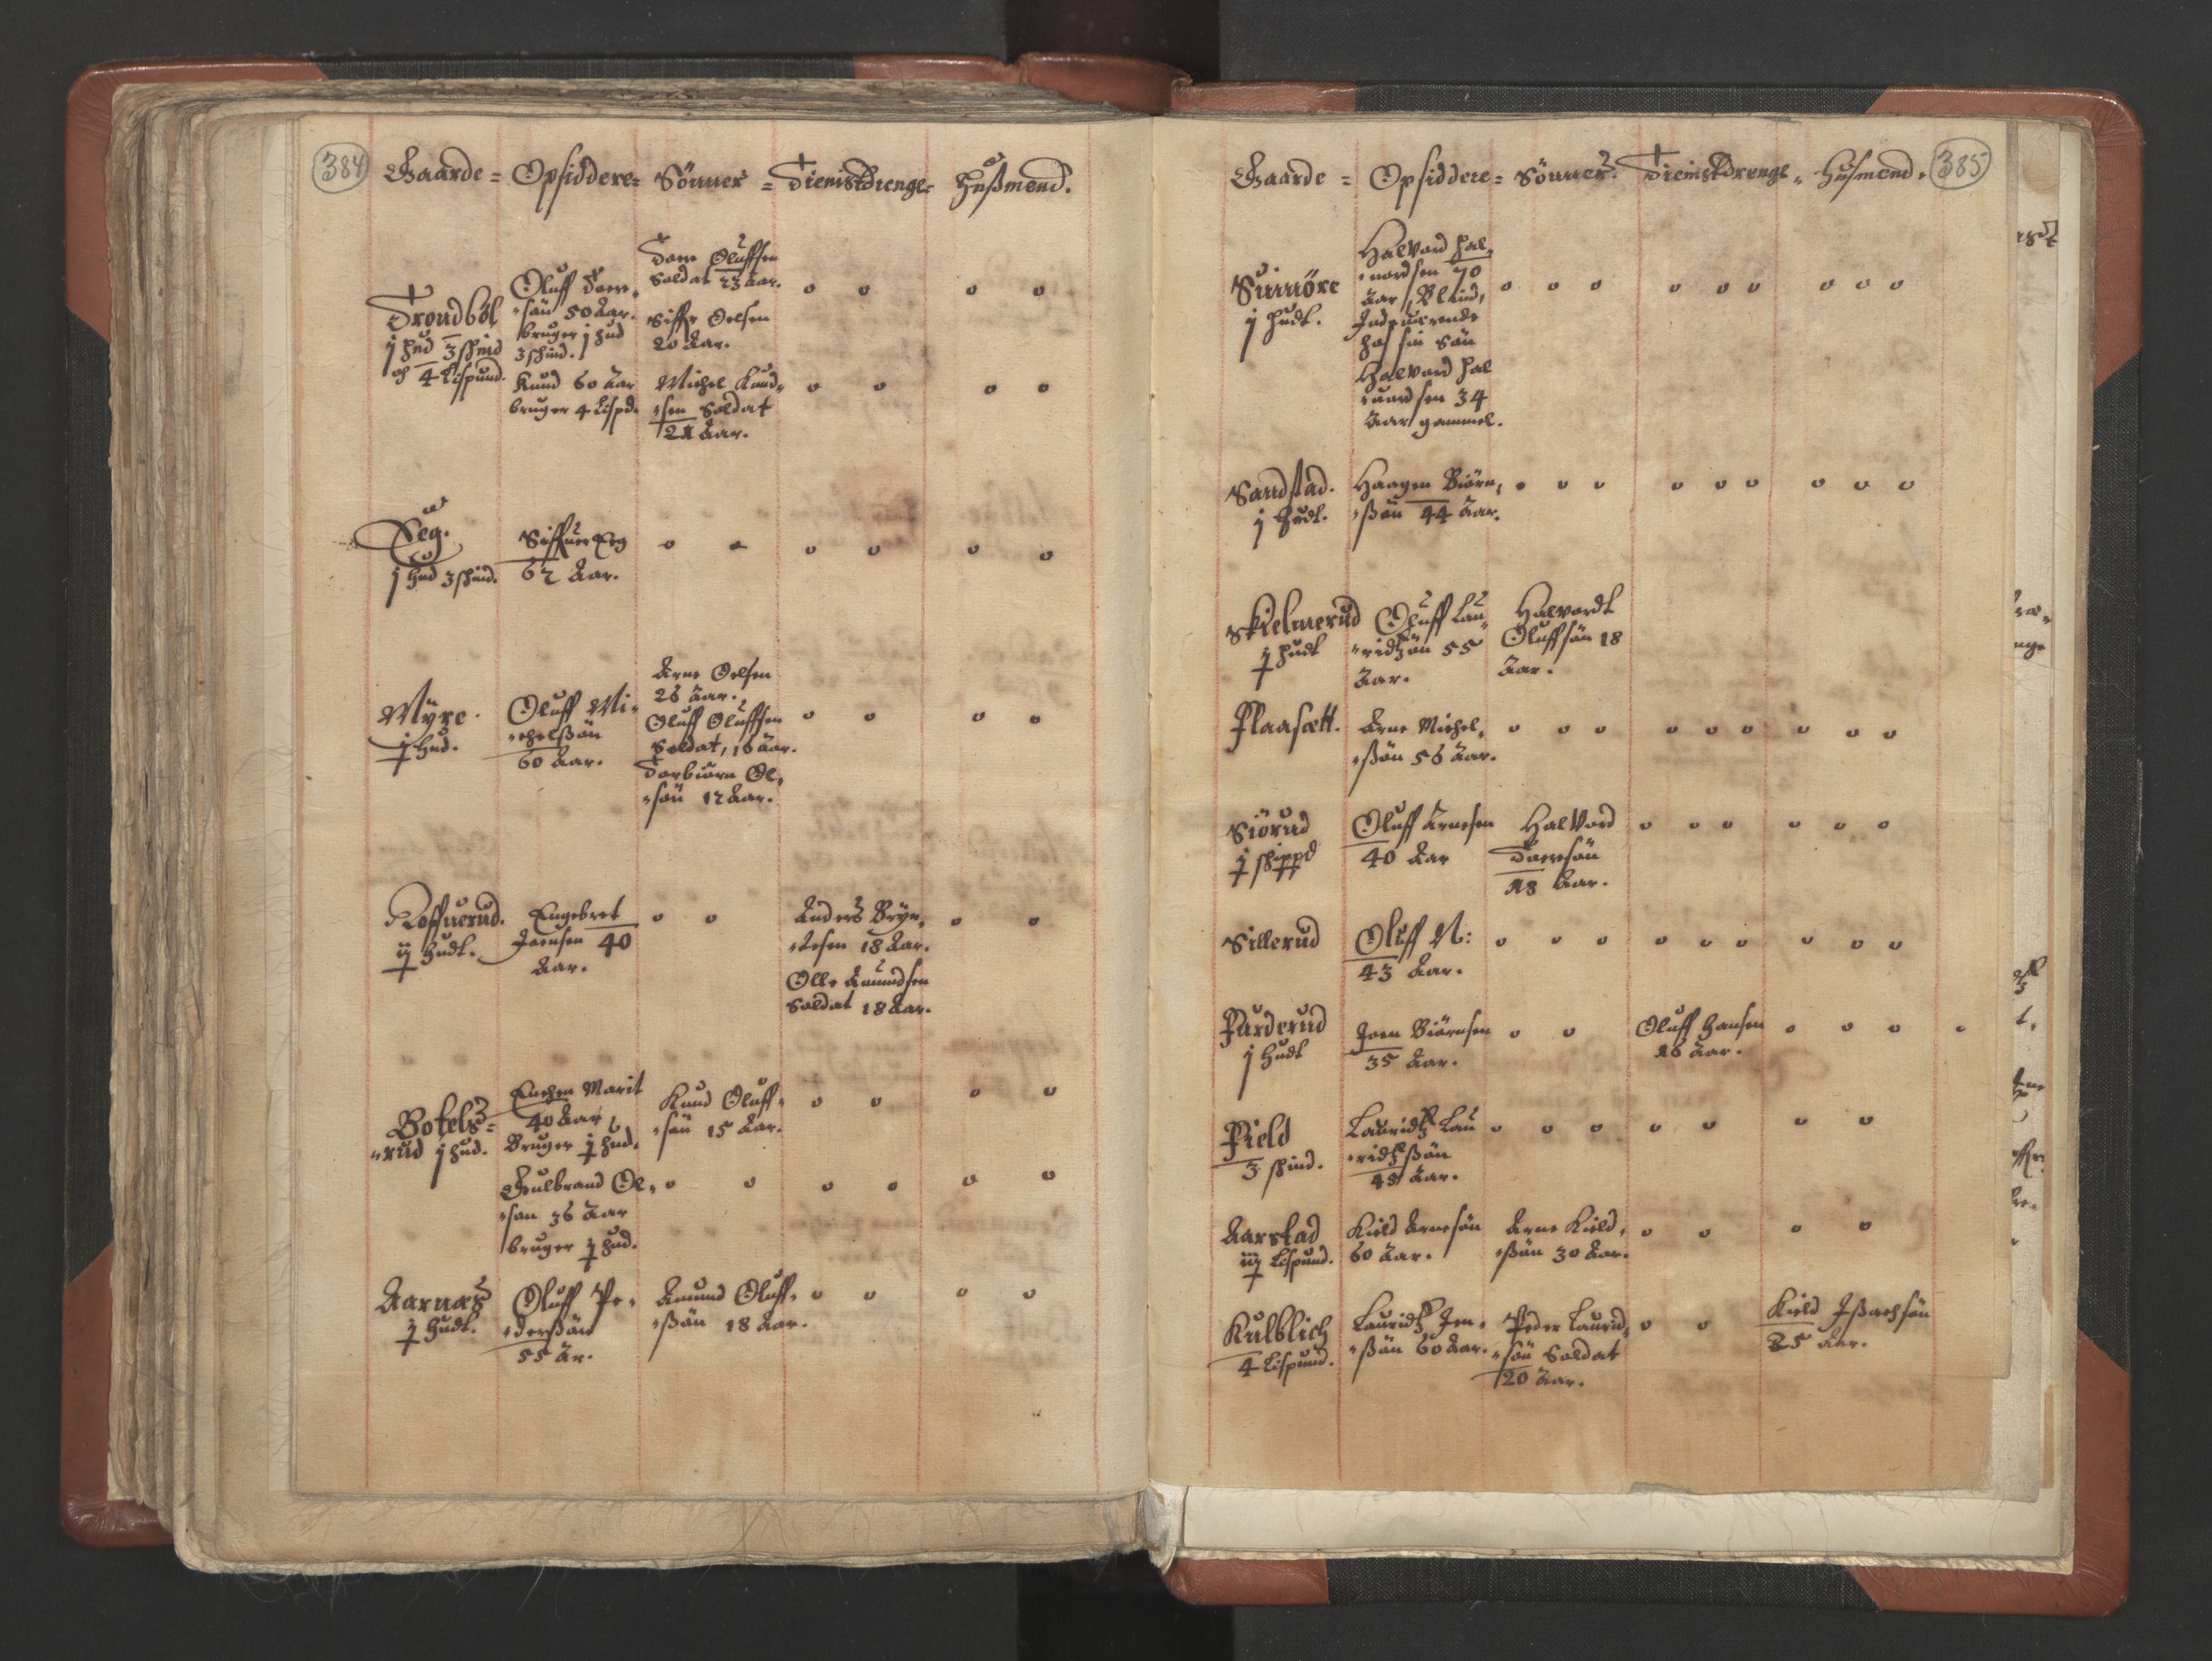 384
Gaarde = Opsiddere = Sönner = Tienistdrenge = Hußmend.
Trondböl
j hud 3 skind
och 4 Lispund.
Oluff Tore-
sön 50 Aar.
bruger j hud
3 skind.
Tore Oluffsen
Soldat 23 Aar.
Siffr Oelsen
20 Aar.
o o o o
Knud 60 Aar
bruger 4 Lispd.
Michel Knud-
sen Soldat
21 Aar.
o o o o
Eeg.
j hud 3 skind.
Siffuer Eeg
62 Aar.
o o o o o o
Myre.
j hud.
Oluff Mi-
chelßön
60 Aar.
Arne Oelsen
26 Aar.
Oluff Oluffsen
Soldat, 16 Aar.
Torbiörn Ol-
sön 12 Aar.
o o o o
Roffuerud.
ij hudt.
Engebret
Joensen 40
Aar.
o o
Anders Bryn-
telsen 18 Aar.
Olle Amundsen
Soldat 18 Aar.
o o
Botels-
rud j hud.
Enchen Marit
40 Aar
Bruger j hud.
Knud Oluff-
sön 15 Aar.
o o o o
Gulbrand Ol-
sen 36 Aar
bruger j hud.
o o o o o o
Aarnæs
j hudt.
Oluff Pe-
derßön
55 Ar.
Amund Oluff-
ßön 18 Aar.
o o o o
385
Gaarde = Opsiddere = Sönner = Tienistdrenge = Husmend.
Sunnöre
j hudt.
Halvord Hal-
vordsen 70
Aar, Blind,
hos sin Sön
Halvord Hal
uordsen 34
Aar gammel.
o o o o o o o o o
Sandstad.
j hudt.
Haagen Biörn-
ßön 44 Aar.
o o o o o o o o o
Skielmerud
j hudt
Oluff Lau-
ridzön 55
Aar.
Halvordt
Oluffsön 18
Aar.
Plaasætt.
Arne Michel-
ßön 56 Aar.
o o o o o o o o o
Siörud
j skippd
Oluff Arnesen
40 Aar
Halvord
Toersön
18 Aar.
o o o o o o
Sillerud
Oluff N:
43 Aar.
o o o o o o o o o
Purderud
j hudt
Joen Biörnsen
35 Aar.
o o
Oluff Hansen
16 Aar.
o o o
Field
3 skind.
Lauridz Lau
ridzßön
43 Aar.
o o o o o o o
Aarstad
iij Lispund.
Kield Arnesön
60 Aar.
Arne Kield-
ßön 30 Aar.
o o o o
Kulblich
4 Lispund.
Lauridz Jen-
ßön 60 Aar.
Peder Laurid-
sön Soldat
20 Aar.
o o
Kield Ißachsön
25 Aar.